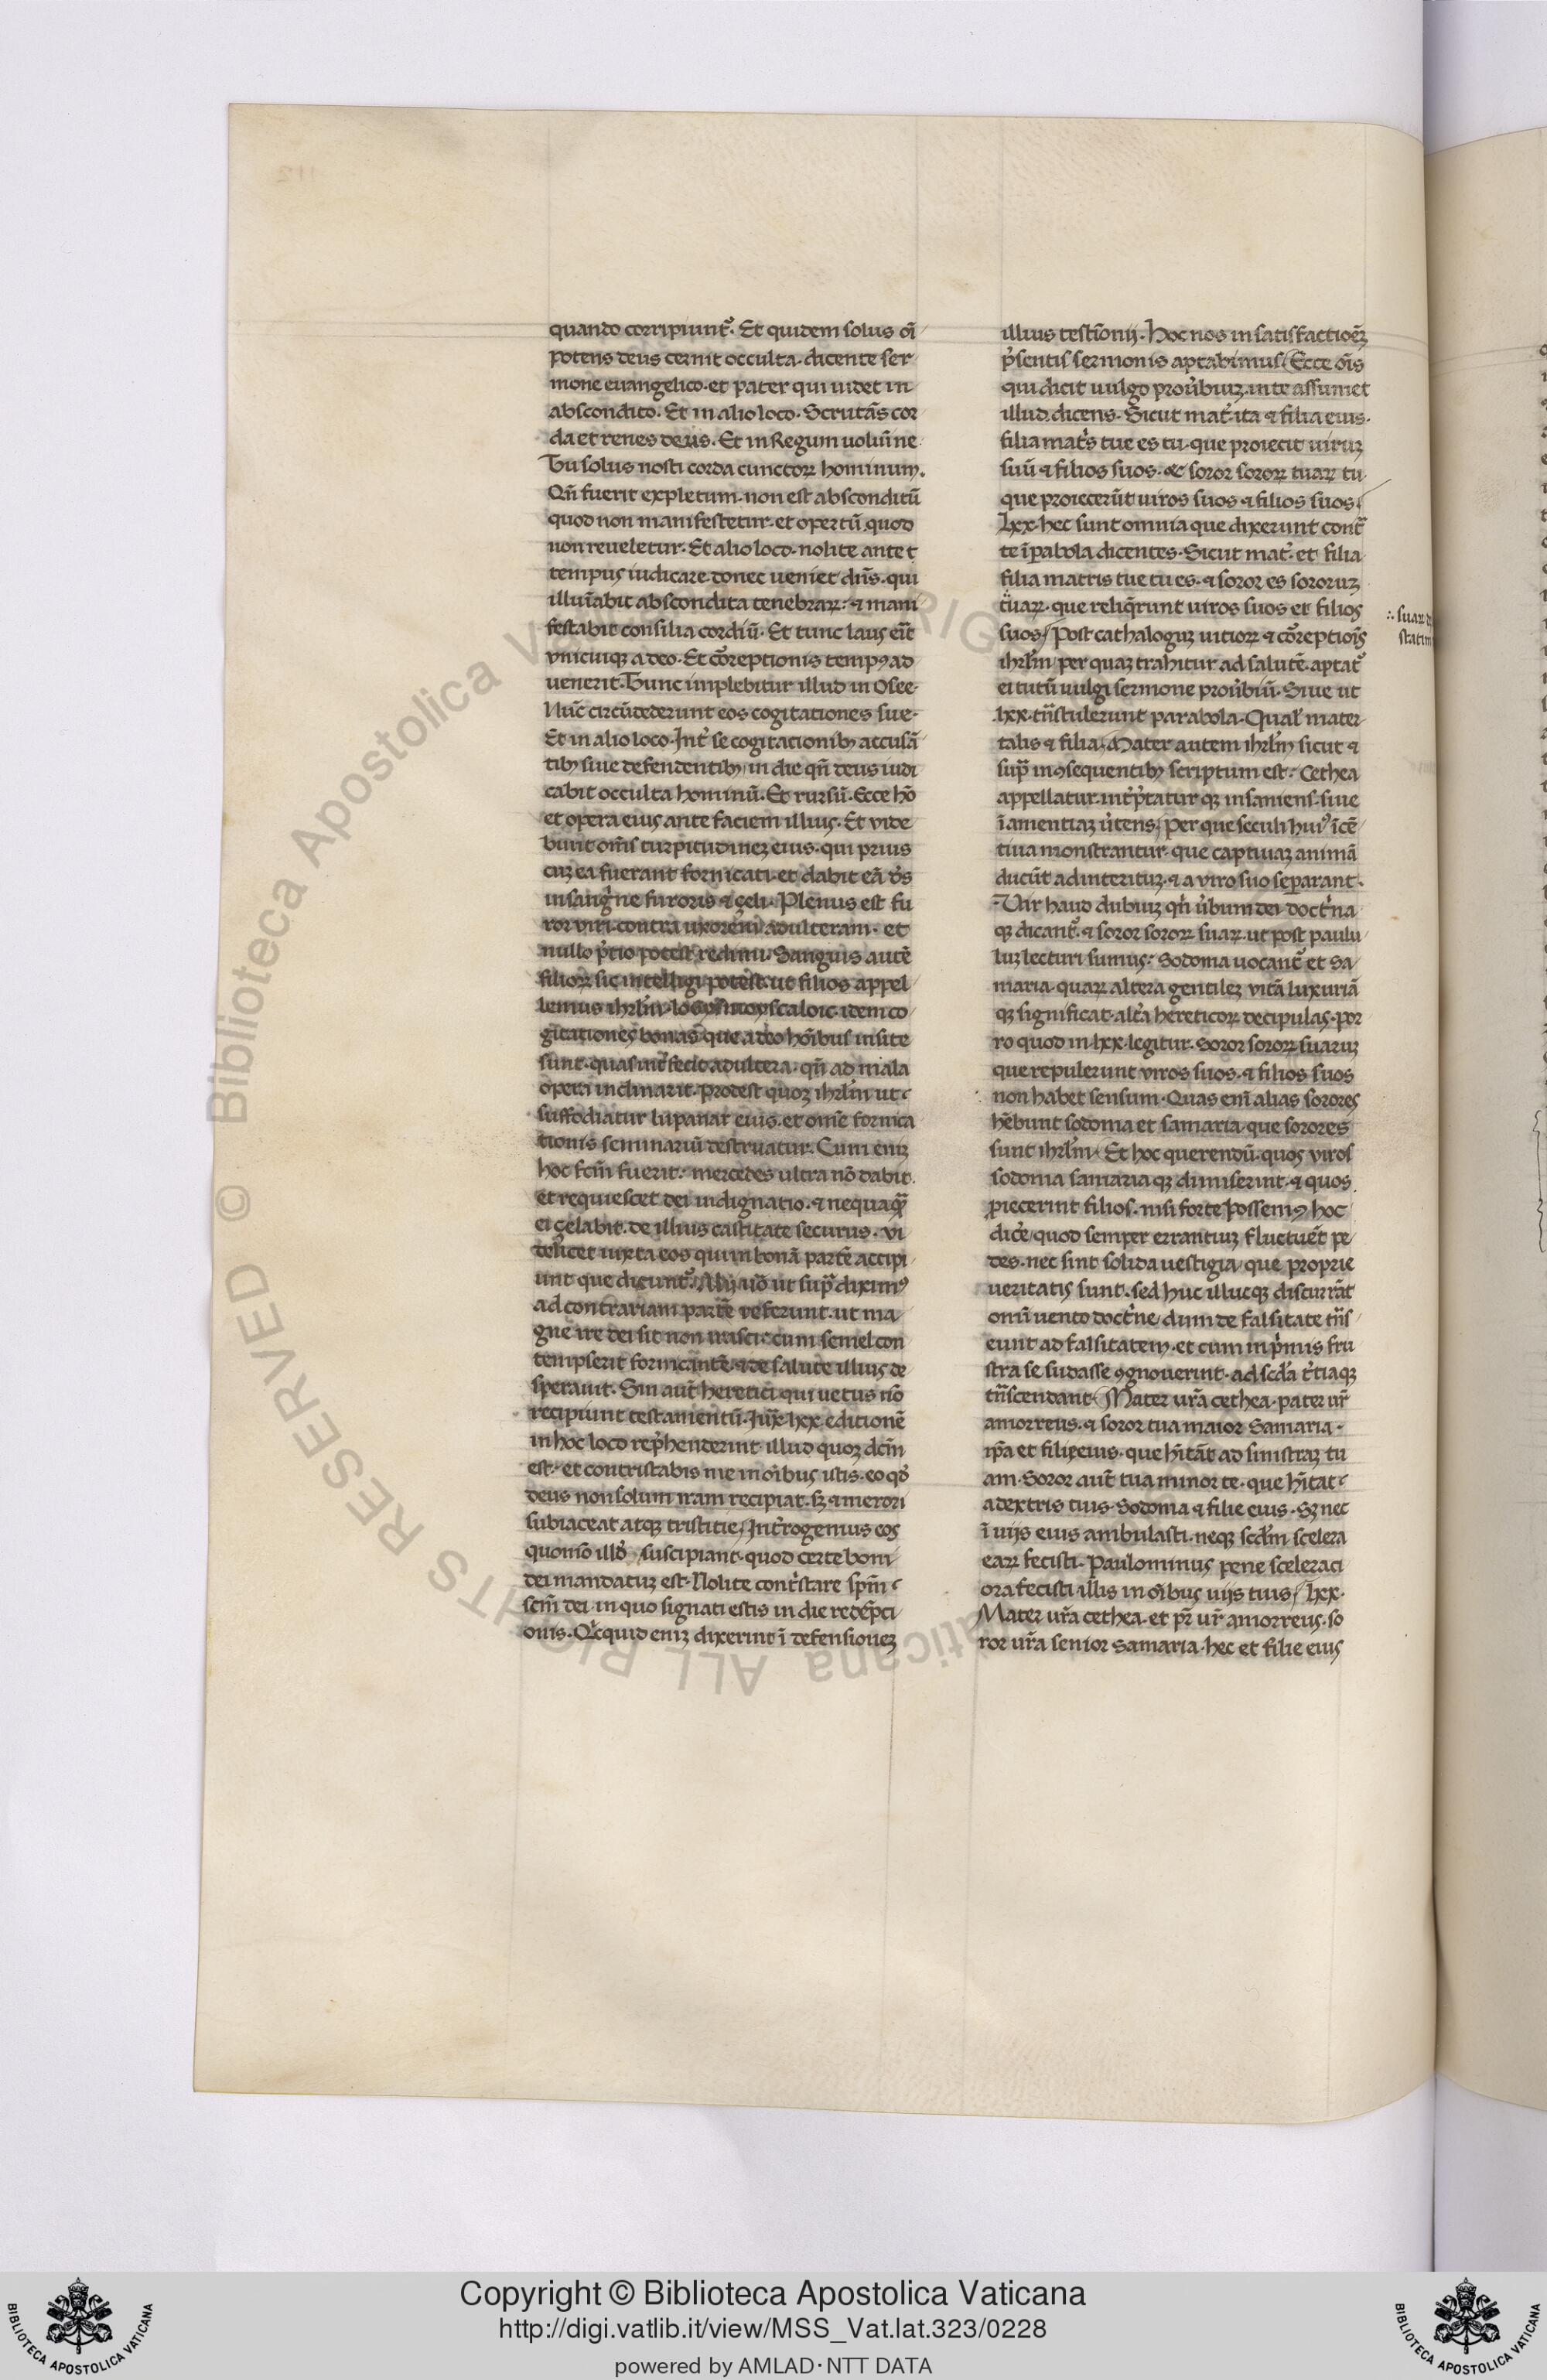 quando corripiunt᷑. Et quidem solus oī
potens deus cernit occulta. dicente ser
mone euangelico. et pater qui uidet in
abscondito. Et in alio loco. Scrutās cor
da et renes deus. Et in Regum uolumīne
Tu solus nosti corda cunctoꝝ hominum.
Qn̄ fuerit expletum. non est absconditū
quod non manifestetur. et opertū quod
non reueletur. Et alio loco. nolite ante t
tempus iudicare donec ueniet dn̄s. qui
illuīabit abscondita tenebraꝝ: ⁊ mani
festabit consilia cordiū. Et tunc laus eīt
vnicuiqꝫ a deo. Et cōreptionis tempꝰ ad
uenerit. Tunc implebitur illud in Osee.
Nūc circūdederunt eos cogitationes sue.
Et in alio loco. Int̓ se cogitationibꝫ accusā
tibꝫ siue defendentibꝫ in die qn̄ deus iudi
cabit occulta hominū. Et rursū. Ecce hō
et opera eius ante faciem illius. Et vide
bunt om̄s turpitudineꝫ eius. qui prius
cuꝫ ea fuerant fornicati. et dabit eā d̓s
in sang̓ne furoris ⁊ çeli. Plenus est fu
ror viri contra uxorem adulteram. et
nullo p̓tio potest redimi. Sanguis autē
filioꝝ sic intelligi potest. ut filios appel
lemus ihrl̄m. idem co
gitationes bonas que a deo hōibus insite
sunt. quas int̓fecit adultera. qn̄ ad mala
opera inclinarit. prodest quoꝫ ihrl̄m ut
suffodiatur lupanar eius. et omē fornica
tionis seminariū destruatur. Cum eniꝫ
hoc fcm̄ fuerit: mercedes ultra nō dabit.
et requiescet dei indignatio. ⁊ nequaqꝫ̄
ei çelabit. de illius castitate securus. vi
delicet iuxta eos qui in bonā partē accipi
unt que dicunt᷑. Alij uō ut sup̄ diximꝰ
ad contrariam partē referunt. ut ma
gne ire dei sit non irasci: cum semel con
tempserit fornicantē. ⁊ de salute illius de
sperauit. Sin aut̄ heretici qui uetus nō
recipiunt testamentū. Iux̄ lxx editionē
in hoc loco rep̓henderint illud quoꝫ dcm̄
est. et contristabis me in oībus istis. eo qd̓
deus non solum iram recipiat. sꝫ ⁊ merori
subiaceat atqꝫ tristitie. Int̓rogemus eos
quomō illd̓ suscipiant. quod certe boni
dei mandatuꝫ est. Nolite cont̓stare spm̄
scm̄ dei. in quo signati estis in die redēpti
onis. Qi̓cquid eniꝫ dixerint ī defensioneꝫ
illius testīonij. Hoc nos in satisfactioēꝫ
p̓sentis sermonis aptabimus. Ecce om̄s
qui dicit uulgo prou̓biuꝫ. in te assumet
illud. dicens. Sicut mat̓. ita ⁊ filia eius.
filia mat̓s tue es tu. que proiecit uiruꝫ
suū ⁊ filios suos. ⁊ soror sororꝝ tuaꝝ tu
que proiecerūt uiros suos ⁊ filios suos.
Lxx. hec sunt omnia que dixerunt cont̄
te ī parabola dicentes. Sicut mat̓. et filia
filia matris tue tu es. ⁊ soror es sororuꝫ
tuaꝝ. que reliq̄runt uiros suos et filios
suos. Post cathaloguꝫ uitioꝝ ⁊ cōreptiois̄
ihrl̄m per quaꝫ trahitur ad salutē. aptat᷑
ei tutū uulgi sermone prou̓biū. Siue ut
lxx. tn̄stulerunt parabola. Qual̓ mater
talis ⁊ filia. Mater autem ihrl̄m sicut ⁊
sup̄ in ꝯsequentibꝫ scriptum est: Cethea
appellatur. int̓p̓tatur qꝫ insaniens. siue
ī amentiaꝫ u̓tens. Per que seculi huiꝰ īcē
tiua monstrantur. que captiuaꝫ animā
ducūt ad interituꝫ. ⁊ a viro suo separant.
Vir haud dubiuꝫ qn̄ u̓bum dei doct̓na
qꝫ dicant᷑. ⁊ soror sororꝝ suaꝝ. ut post paulu
luꝫ lecturi sumus: Sodoma uocant᷑ et Sa
maria. quaꝝ altera gentileꝫ vitā luxuriā
qꝫ significat. alt̓a hereticoꝝ decipulas. por
ro quod in lxx. legitur. Soror sororꝝ suaruꝫ
que repulerunt viros suos. ⁊ filios suos
∴ suaꝝ
statim
non habet sensum. Quas em̄ alias sorores
hēbunt sodoma et samaria. que sorores
sunt ihrl̄m. Et hoc querendū. quos viros
sodoma samariaqꝫ dimiserint. ⁊ quos
ꝓiecerint filios. nisi forte possemꝰ hoc
dic̓e. quod semper errantiuꝫ fluctuēt pe
des. nec sint solida uestigia. que proprie
ueritatis sunt. sed huc illucqꝫ discurrāt
omī uento doct̓ne. dum de falsitate tn̄s
eunt ad falsitatem. et cum in p̓mis fru
stra se sudasse ꝯgnouerint. ad scd̄a t̓tiaqꝫ
tn̄scendant. Mater ur̄a cethea. pater ur̄
amorreus. ⁊ soror tua maior Samaria.
ip̄a et filie eius. que hītāt ad sinistraꝫ tu
am. Soror aut̄ tua minor te. que hītat
a dextris tuis. Sodoma ⁊ filie eius. Sꝫ nec
ī uijs eius ambulasti. neqꝫ scd̄m scelera
eaꝝ fecisti. Paulominus pene sceleraci
ora fecisti illis in oībus uijs tuis. Lxx.
Mater ur̄a cethea. et pr̄ ur̄ amorreus. so
ror ur̄a senior samaria. hec et filie eius
Copyright © Biblioteca Apostolica Vaticana
http://digi.vatlib.it/view/MSS_Vat.lat.323/0228
powered by AMLAD·NTT DATA
BIBLIOTECA APOSTOLICA VATICANA
BIBLIOTECA APOSTOLICA VATICANA
© Biblioteca Apostolica Vaticana ALL RIGHTS RESERVED